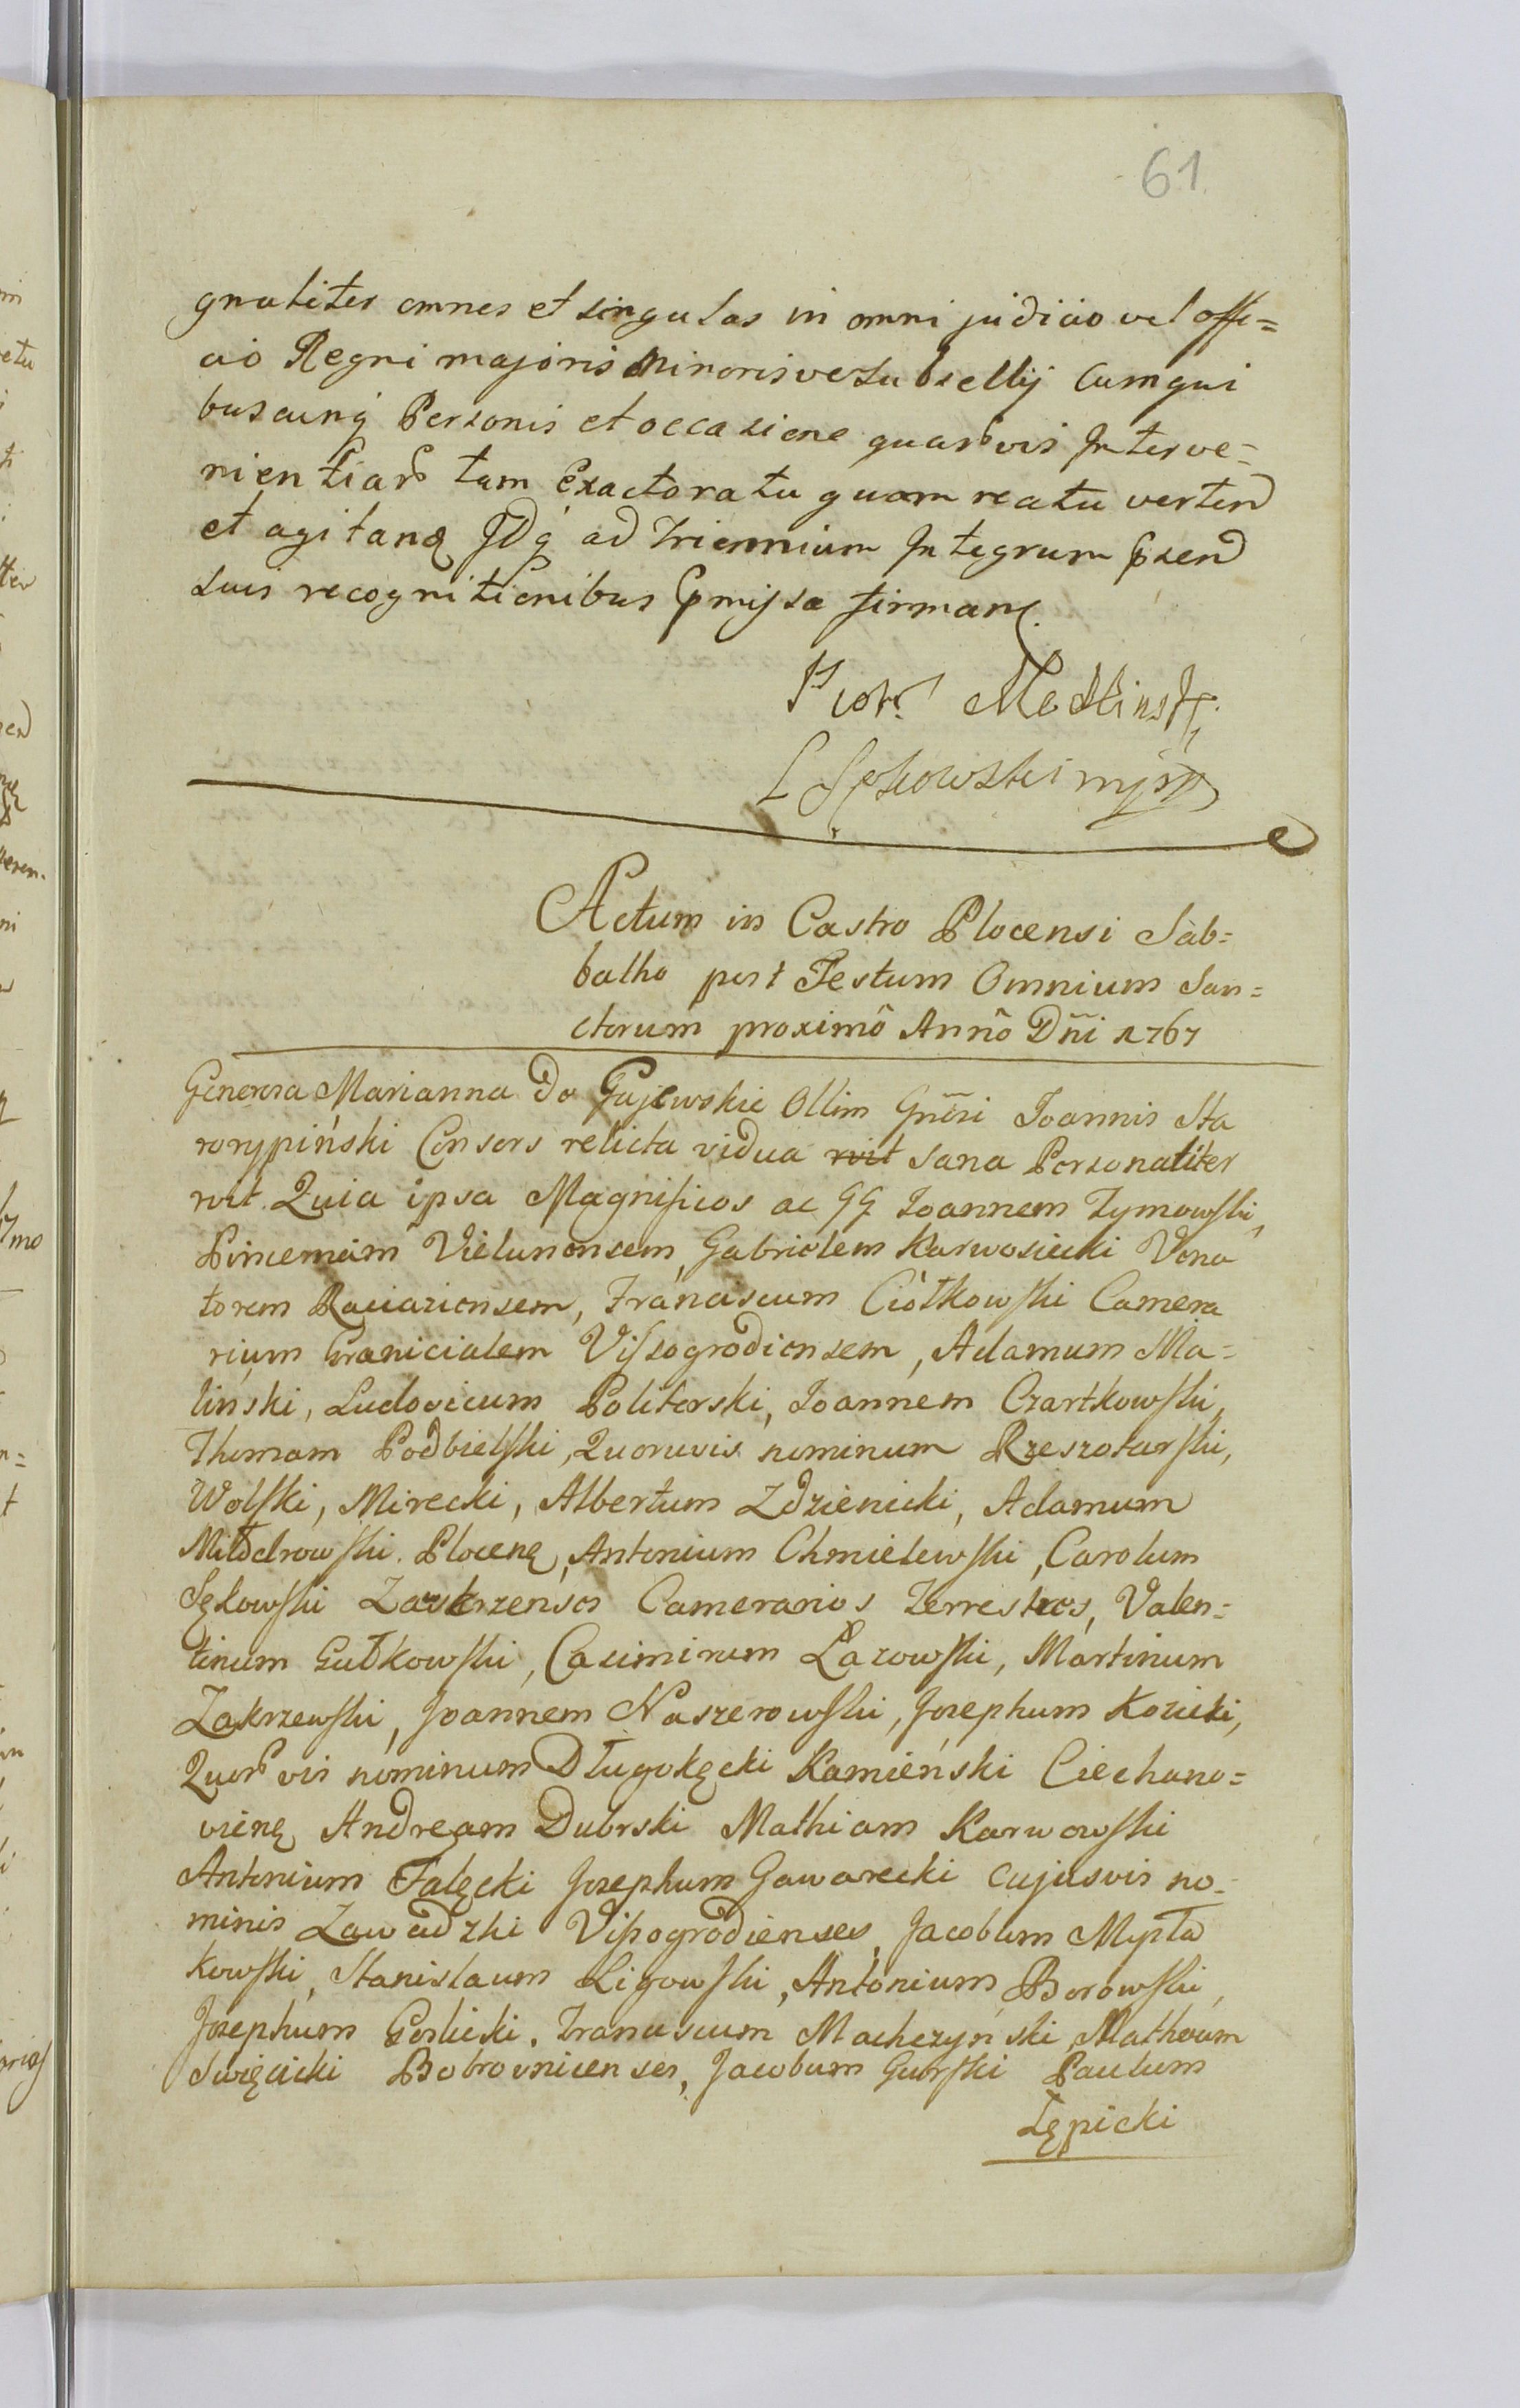 61.
gnaliter omnes et singulas in omni judicio vel offi=
cio Regni majoris Minorisve Subsellij Cumqui
buscunq Personis et occasione quarvis Interve=
nientiar tam Exactoratu quam reatu verten
et agitanq IDq ad Triennium Integrum Psen
suis recognitionibus Pmissa firman.
Piotr Medlinski
L Sękowski mpp
Actum in Castro Plocensi Sab=
batho post Festum Omnium San=
ctorum proximô Annô Dñi 1767
Generosa Marianna de Gujewskie Ollim Gnõsi Joannis Sta
rorypiński Consors relicta vidua rvit sana Personaliter
rvit. Quia ipsa Magnificos ac GG Joannem Tymowski,
Pincernam Vielunensem, Gabrielem Karwosiecki Vena
torem Raciaziensem, Franciscum Ciołkowski Camera
rium Granicialem Vissogrodiensem, Adamum Ma=
liński, Ludovicum Politorski, Joannem Czartkowski,
Thomam Podbielski, Quoruvis nominum Rzeszotarski,
Wolski, Mirecki, Albertum Zdzienicki, Adamum
Miłodrowski. Plocenq, Antonium Chmielewski, Carolum
Sękowski Zawkrzenses Camerarios Terrestres, Valen=
tinum Gutkowski, Casimirum Łazowski, Martinum
Zakrzewski, Joannem Naszerowski, Josephum Kozicki,
Quorvis nominum Długokęcki Kamieński Ciechano=
vienq Andream Dubrski Mathiam Karwowski
Antonium Falęcki Josephum Gawarecki cujusvis no=
minis Zawadzki Vissogrodienses, Jacobum Mysła
kowski, Stanislaum Ligowski, Antonium Borowski,
Josephum Goslicki. Franciscum Machczyński Matheum
Swięcicki Bobrovnicenses, Jacobum Gubrski Paulum
Łępicki